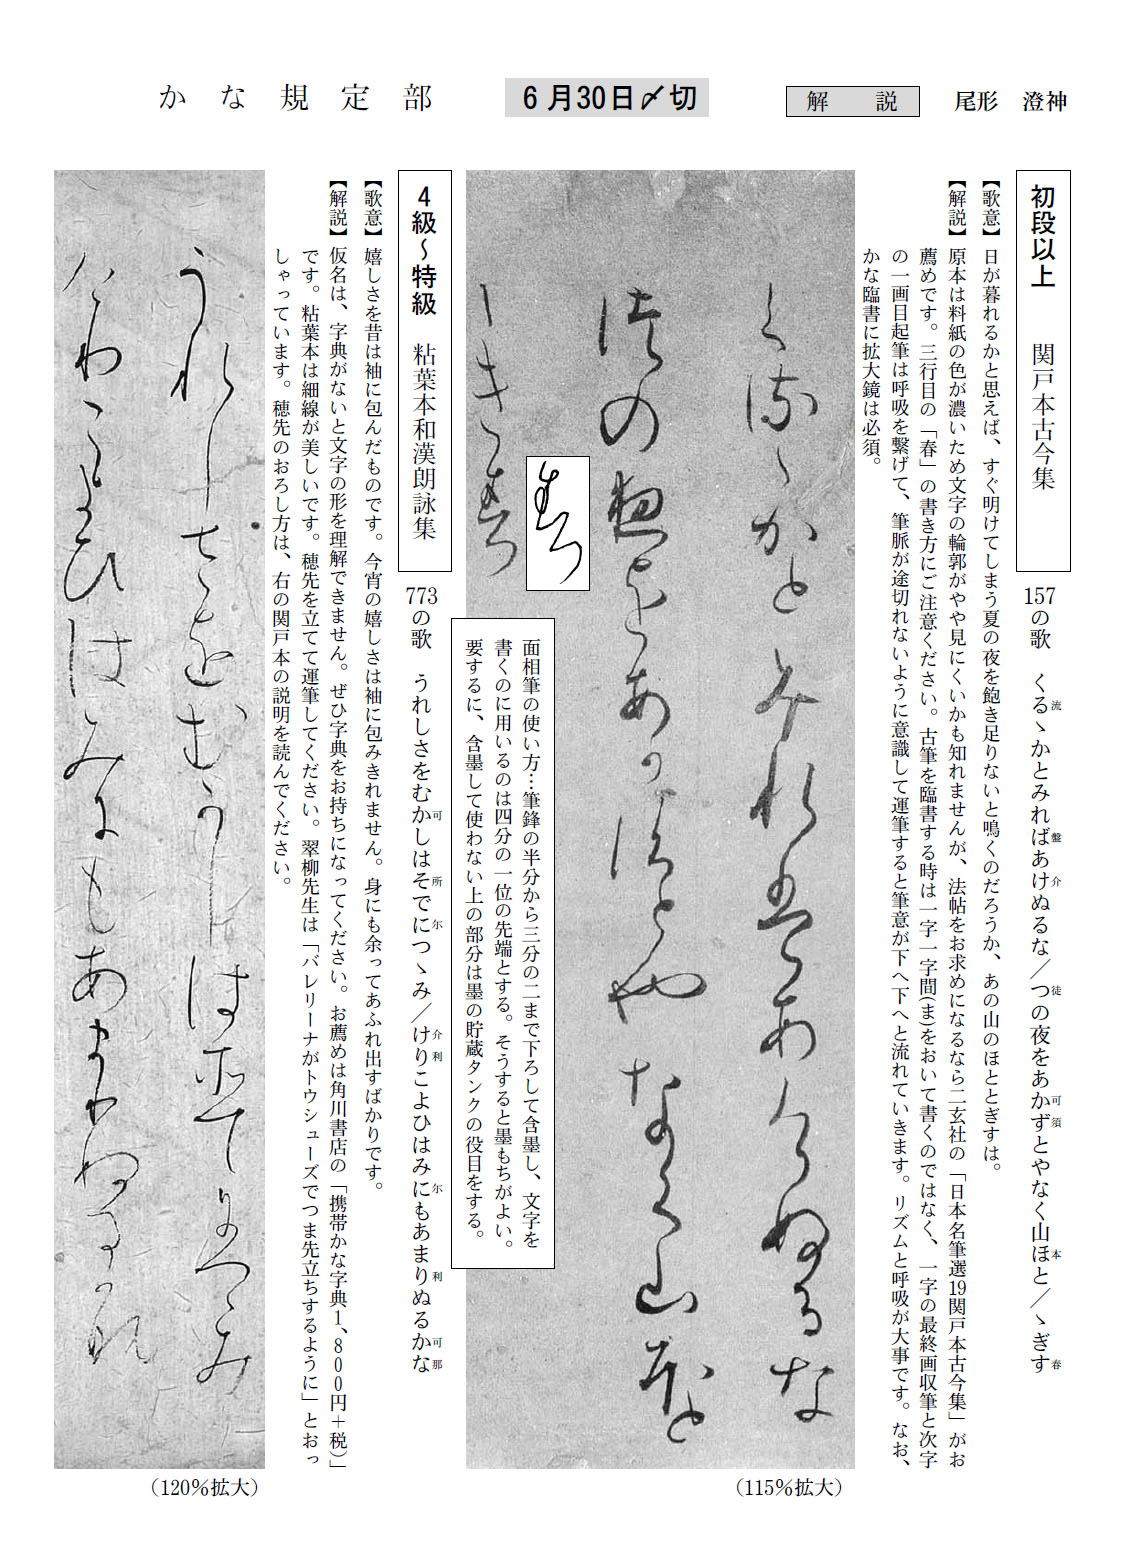 かな規定部
6月30日〆切
解　説
尾形　澄神
初段以上　関戸本古今集
157の歌　くる流ゝかとみれば盤あけ介ぬるな／つ徒の夜をあか可ず須とやなく山ほ本と／ゝぎす春
【歌意】日が暮れるかと思えば、すぐ明けてしまう夏の夜を飽き足りないと鳴くのだろうか、あの山のほととぎすは。
【解説】原本は料紙の色が濃いため文字の輪郭がやや見にくいかも知れませんが、法帖をお求めになるなら二玄社の「日本名筆選19関戸本古今集」がお
薦めです。三行目の「春」の書き方にご注意ください。古筆を臨書する時は一字一字間(ま)をおいて書くのではなく、一字の最終画収筆と次字
の一画目起筆は呼吸を繋げて、筆脈が途切れないように意識して運筆すると筆意が下へ下へと流れていきます。リズムと呼吸が大事です。なお、
かな臨書に拡大鏡は必須。
く流ゝかとみれ盤あ介ぬるな
徒の夜をあ可須とやなく山本と
ゝき春
春
（115％拡大）
面相筆の使い方…筆鋒の半分から三分の二まで下ろして含墨し、文字を
書くのに用いるのは四分の一位の先端とする。そうすると墨もちがよい。
要するに、含墨して使わない上の部分は墨の貯蔵タンクの役目をする。
4級～特級　粘葉本和漢朗詠集
773の歌　うれしさをむか可しはそ所でに尓つゝみ／け介り利こよひはみに尓もあまり利ぬるか可な那
【歌意】嬉しさを昔は袖に包んだものです。今宵の嬉しさは袖に包みきれません。身にも余ってあふれ出すばかりです。
【解説】仮名は、字典がないと文字の形を理解できません。ぜひ字典をお持ちになってください。お薦めは角川書店の「携帯かな字典1、800円＋税)」
です。粘葉本は細線が美しいです。穂先を立てて運筆してください。翠柳先生は「バレリーナがトウシューズでつま先立ちするように」とおっ
しゃっています。穂先のおろし方は、右の関戸本の説明を読んでください。
うれしさをむ可しは所て尓つゝみ
介利こよひはみ尓もあま利ぬる可那
（120％拡大）